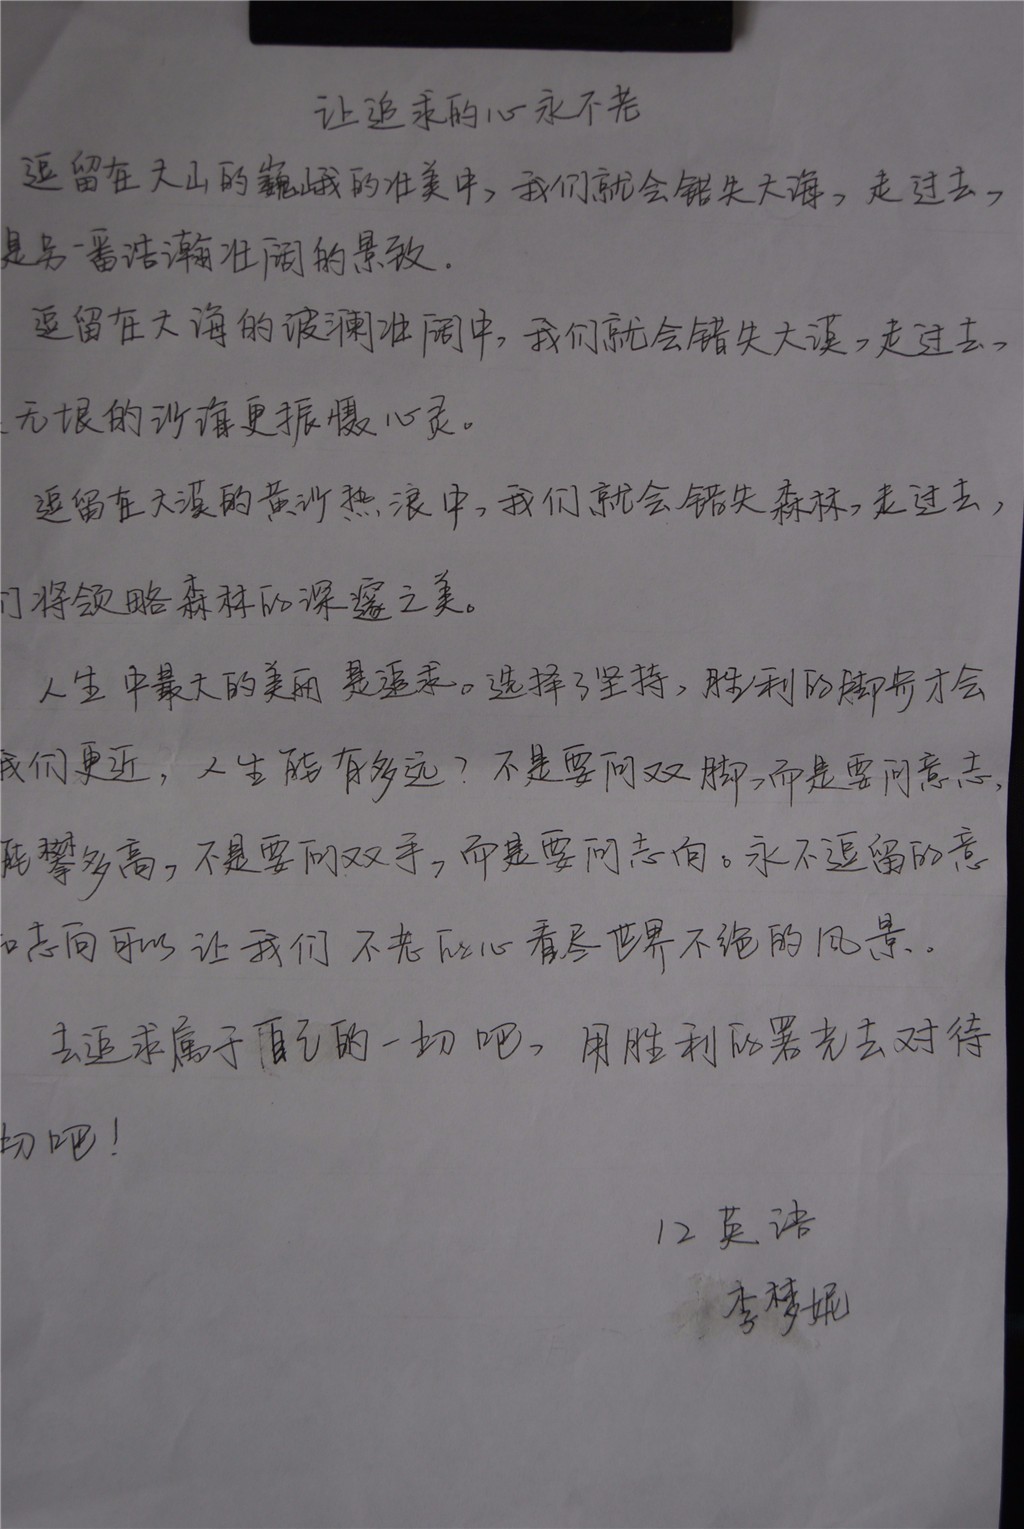 让追求的心永不老
逗留在大山的巍峨的壮美中，我们就会错失大海，走过去，
是另一番浩瀚壮阔的景致.
逗留在大海的波澜壮阔中，我们就会错失大漠，走过去，
无垠的沙海更振慑心灵。
逗留在大漠的黄沙热浪中，我们就会错失森林，走过去，
们将领略森林的深邃之美。
人生中最大的美丽是追求。选择了坚持，胜利的脚步才会
我们更近，人生能有多远？不是要问双脚，而是要问意志，
能攀多高，不是要问双手，而是要问志向。永不逗留的意
和志向可以让我们不老的心看尽世界不绝的风景.
去追求属于自己的一切吧，用胜利的署光去对待
切吧！
12英语
李梦妮